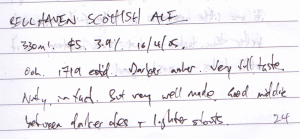 BELLHAVEN SCOTTISH ALE
330ml. $5. 3.9% 16/4/05.
Ooh. 1719 estd. Darker amber. Very full taste.
Nutty, in fact. But very well made. Good middle
between darker ales + lighter stouts. 24